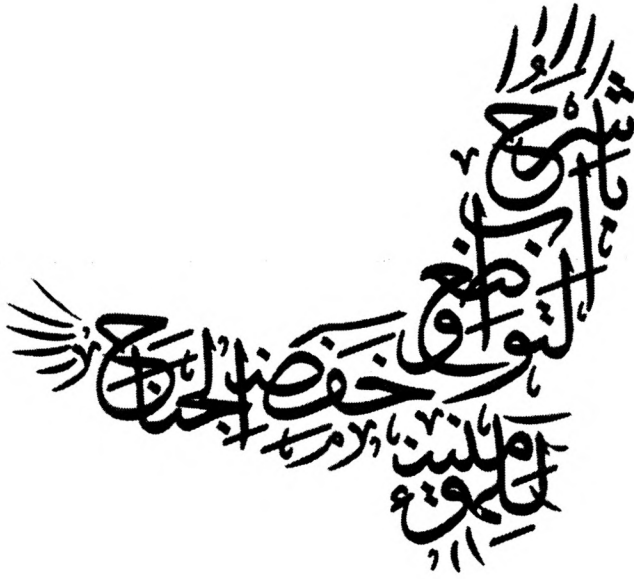 شرح
باب
التواضع
وخفض الجناح
للمؤمنين